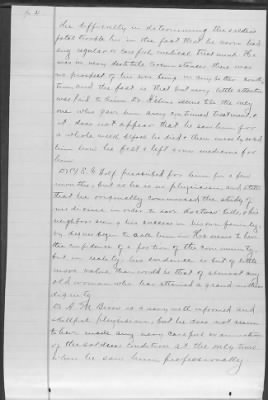 The difficulty in determining the soldiers
fatal trouble lies in the fact that he never had
any regular or careful medical treatment. He
was in very destitute circumstances there was
no prospect of his ever being in any better
and the fact is that but very little attention
was paid to him. Dr seems like the only
one who gave him any continued treatment &
it does not appear that he saw him for
a whole week before he died &
him
Dr S. G. prescribed for him for a few
months, but as he is no physician, and states
that he originally commenced the study of
medicine in order to save doctors bills, & his
neighbors seeing his success in his own family,
by degrees began to call him in. He seems to have
the confidence of a portion of the community
but in reality his evidence is but of little
more value than would be that of almost any
old woman who has attained a grand mothers
dignity
Dr A. M. is a very well informed and
skillful physician, but he does not seem
to have made any very careful examination
of the soldiers condition at the only time
when he saw him professionally